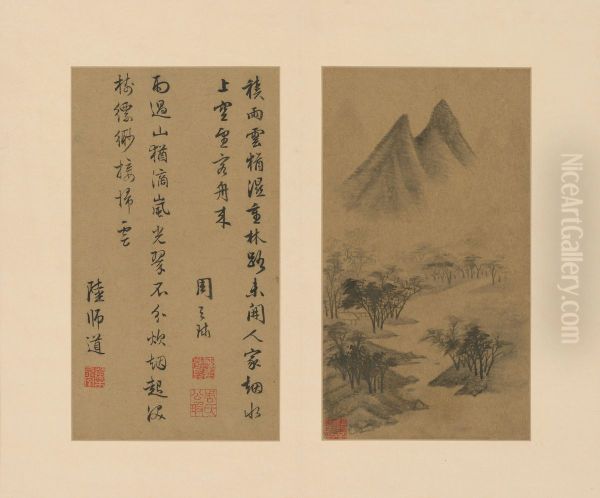 積雨雲猶濕重林路未開人家烟水
上空望客舟来
周天球
雨過山猶滴嵐光翠不分炊烟起深
樹縹緲接歸雲
陸師道
NiceArtGallery.com